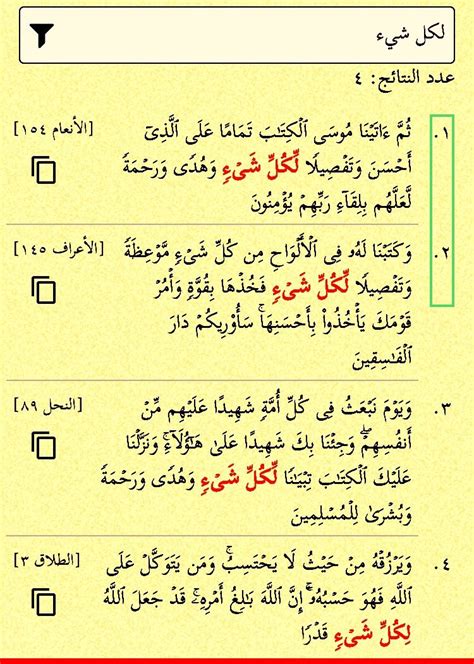 لكل شيء
عدد النتائج: ٤
١. ثُمَّ ءَاتَيۡنَا مُوسَى ٱلۡكِتَٰبَ تَمَامًا عَلَى ٱلَّذِيٓ [الأنعام ١٥٤]
أَحۡسَنَ وَتَفۡصِيلٗا لِّكُلِّ شَيۡءٖ وَهُدٗى وَرَحۡمَةٗ
لَّعَلَّهُم بِلِقَآءِ رَبِّهِمۡ يُؤۡمِنُونَ
٢. وَكَتَبۡنَا لَهُۥ فِي ٱلۡأَلۡوَاحِ مِن كُلِّ شَيۡءٖ مَّوۡعِظَةٗ [الأعراف ١٤٥]
وَتَفۡصِيلٗا لِّكُلِّ شَيۡءٖ فَخُذۡهَا بِقُوَّةٖ وَأۡمُرۡ
قَوۡمَكَ يَأۡخُذُواْ بِأَحۡسَنِهَاۚ سَأُوْرِيكُمۡ دَارَ
ٱلۡفَٰسِقِينَ
٣. وَيَوۡمَ نَبۡعَثُ فِي كُلِّ أُمَّةٖ شَهِيدًا عَلَيۡهِم مِّنۡ [النحل ٨٩]
أَنفُسِهِمۡۖ وَجِئۡنَا بِكَ شَهِيدًا عَلَىٰ هَٰٓؤُلَآءِۚ وَنَزَّلۡنَا
عَلَيۡكَ ٱلۡكِتَٰبَ تِبۡيَٰنٗا لِّكُلِّ شَيۡءٖ وَهُدٗى وَرَحۡمَةٗ
وَبُشۡرَىٰ لِلۡمُسۡلِمِينَ
٤. وَيَرۡزُقۡهُ مِنۡ حَيۡثُ لَا يَحۡتَسِبُۚ وَمَن يَتَوَكَّلۡ عَلَى [الطلاق ٣]
ٱللَّهِ فَهُوَ حَسۡبُهُۥٓۚ إِنَّ ٱللَّهَ بَٰلِغُ أَمۡرِهِۦۚ قَدۡ جَعَلَ ٱللَّهُ
لِكُلِّ شَيۡءٖ قَدۡرٗا